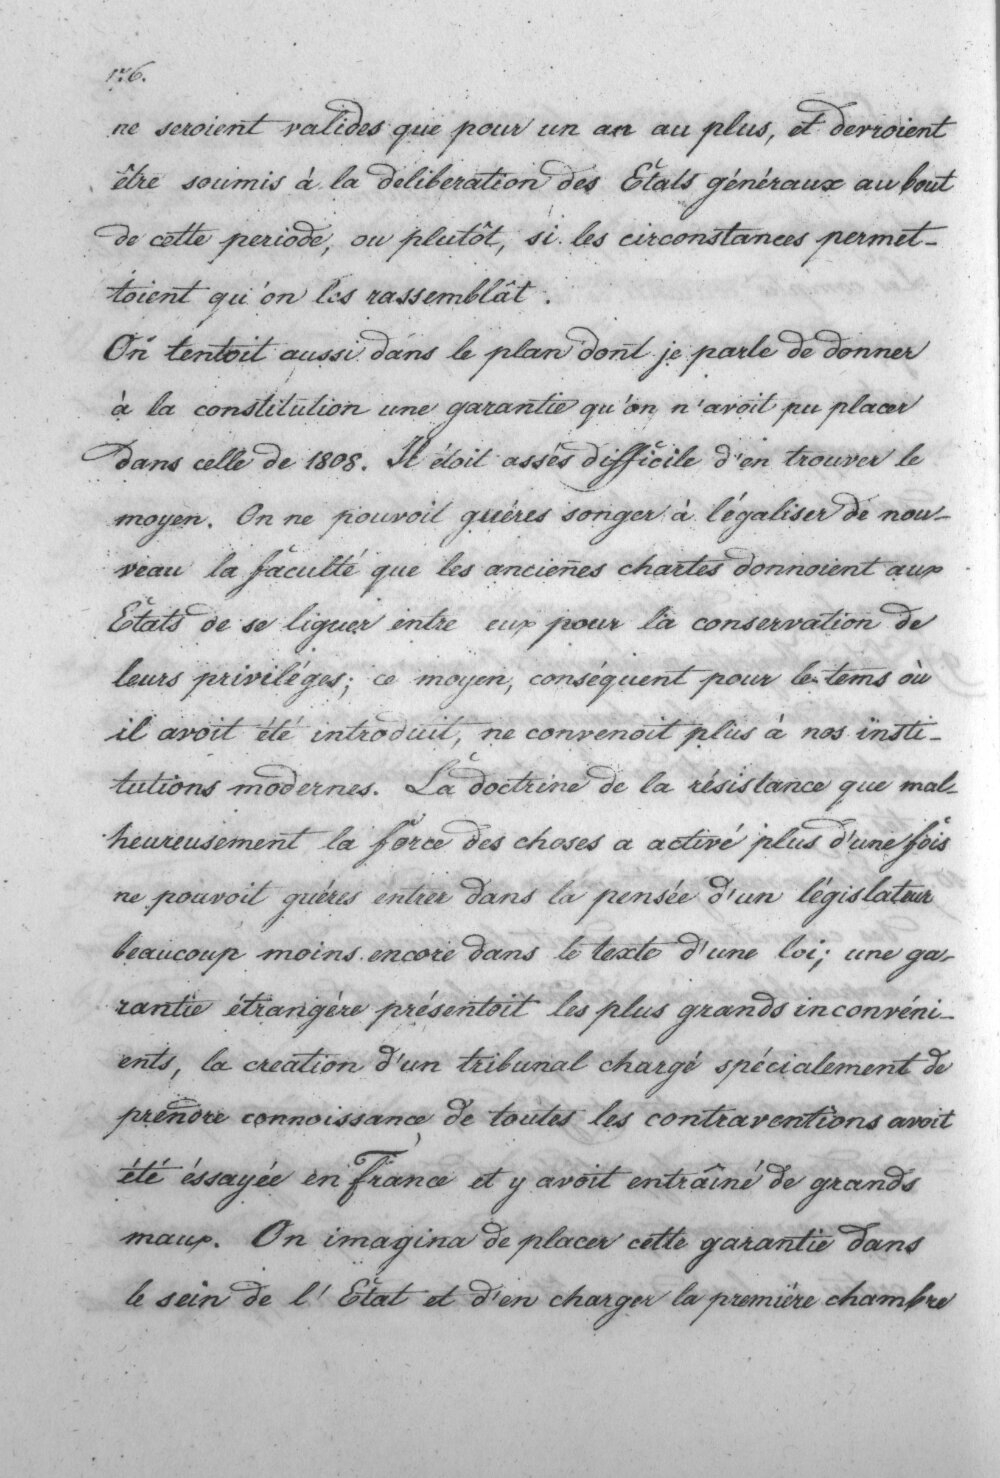 176.
ne seroient valides que pour un an au plus, et devroient
être soumis à la deliberation des Etats généraux au bout
de cette periode, ou plutôt, si les circonstances permet-
toient qu'on les rassemblât.
On tentoit aussi dans le plan dont je parle de donner
à la constitution une garantie qu'on n'avoit pu placer
dans celle de 1808. Il étoit assés difficile d'en trouver le
moyen. On ne pouvoit guéres songer à légaliser de nou-
veau la faculté que les anciennes chartes donnoient aux
Etats de se liguer entre eux pour la conservation de
leurs priviléges; ce moyen, conséquent pour le tems où
il avoit été introduit, ne convenoit plus à nos insti-
tutions modernes. La doctrine de la résistance que mal-
heureusement la force des choses a activé plus d'une fois
ne pouvoit guéres entrer dans la pensée d'un législateur
beaucoup moins encore dans le texte d'une loi; une ga-
rantie étrangère présentoit les plus grands inconvéni-
ents, la creation d'un tribunal chargé spécialement de
prendre connoissance de toutes les contraventions avoit
été éssayée en France et y avoit entraîné de grands
maux. On imagina de placer cette garantie dans
le sein de l'Etat et d'en charger la premiére chambre